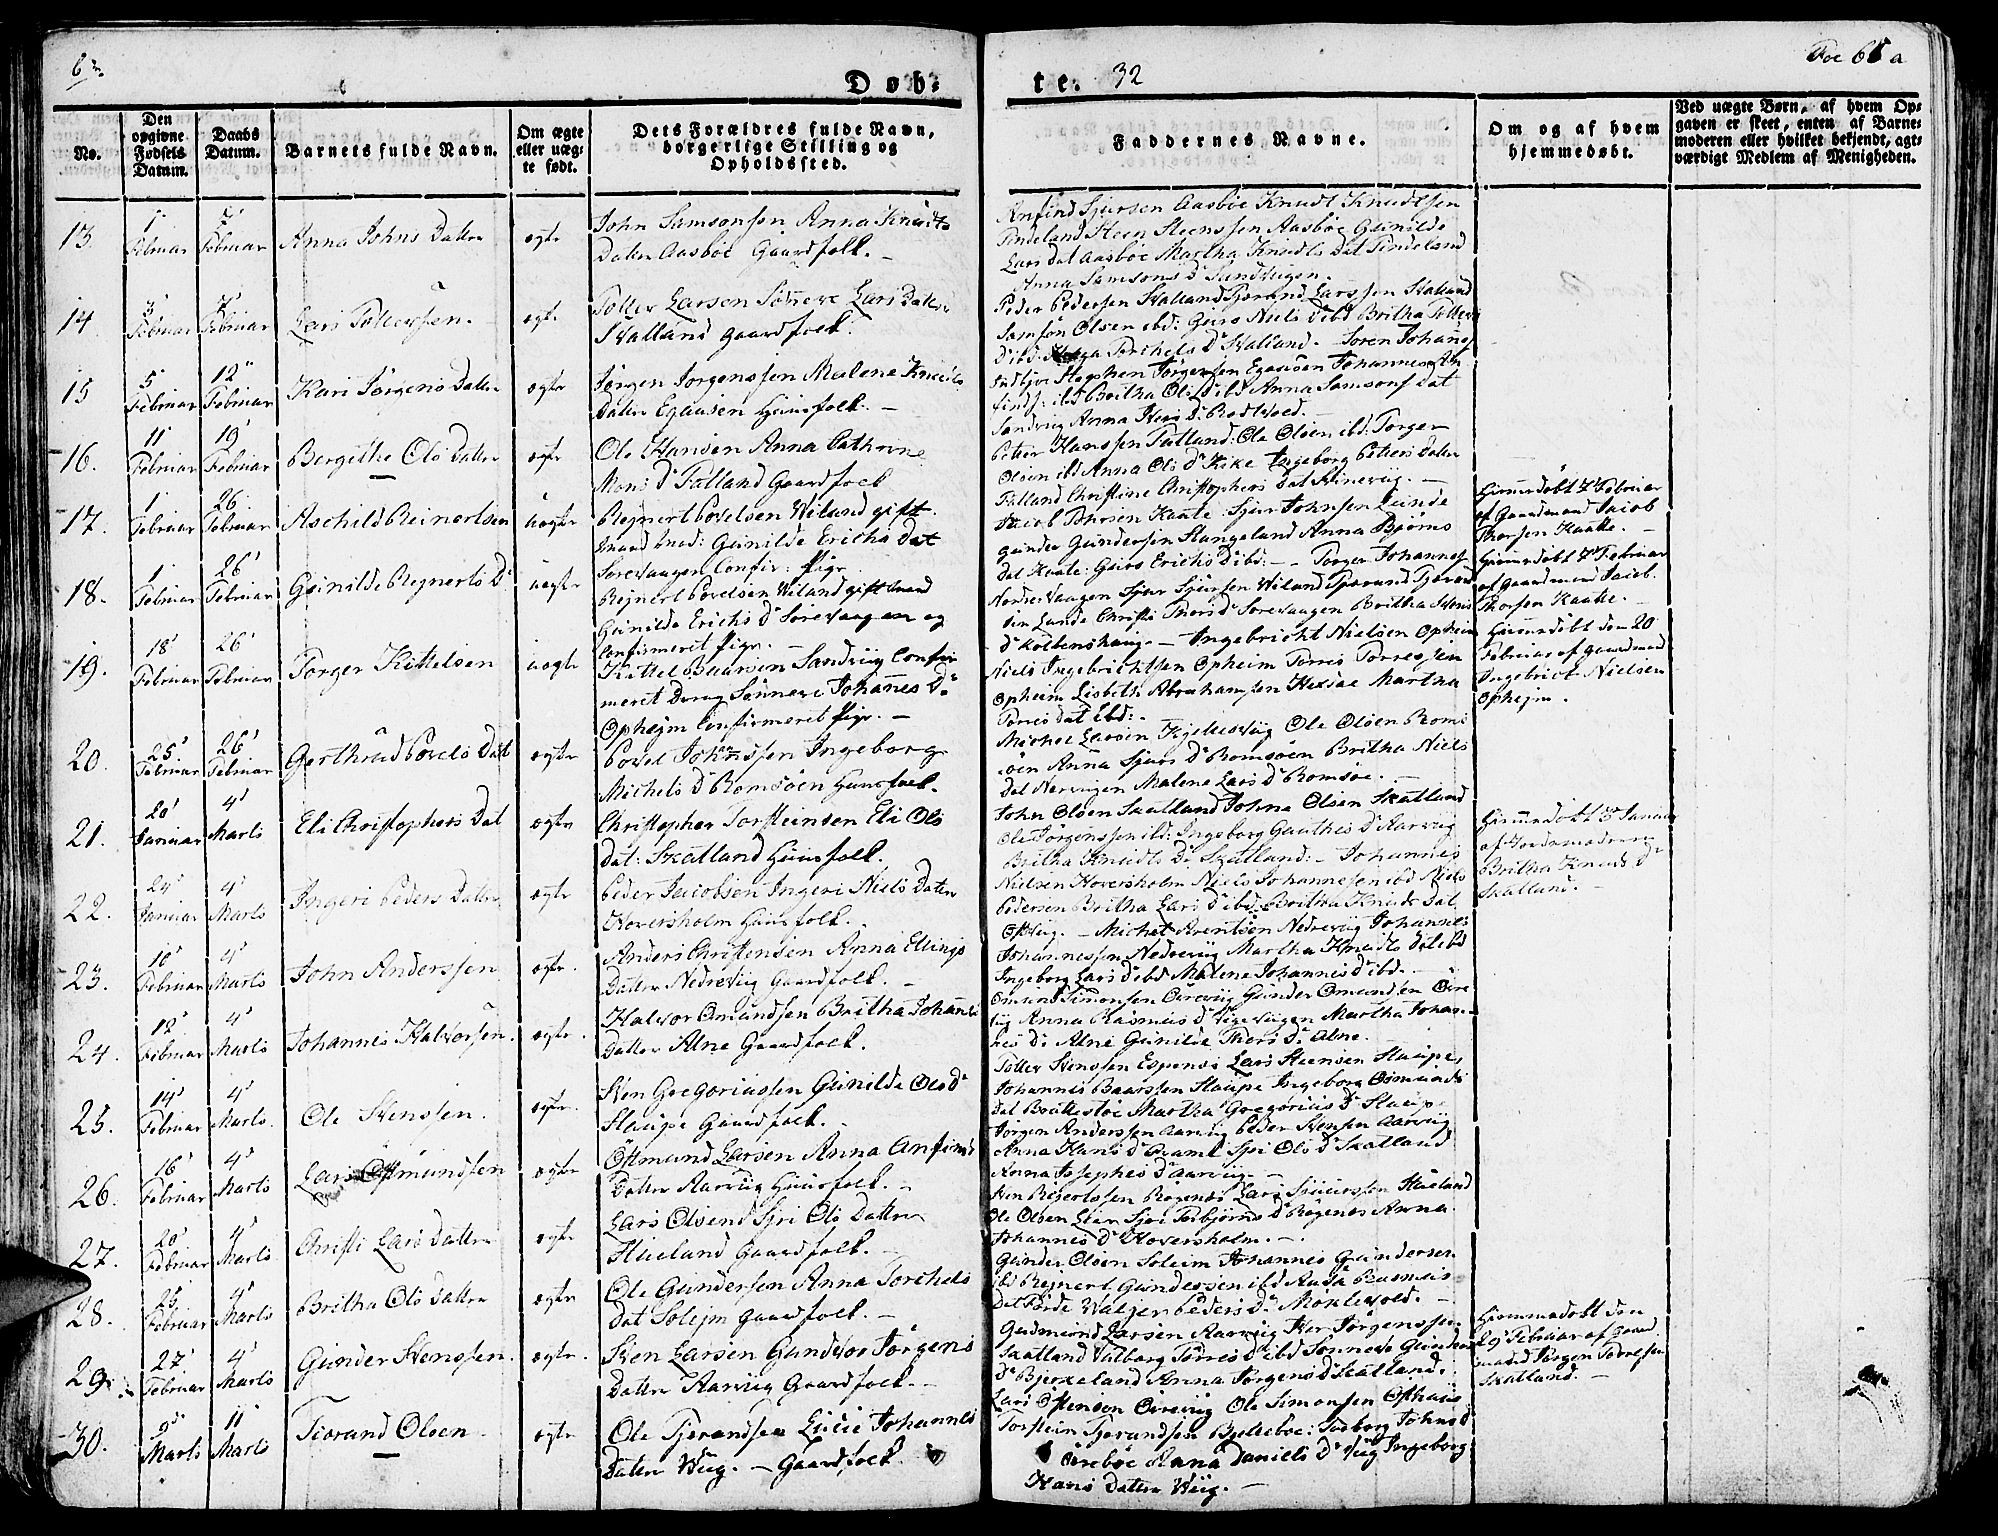 Døb-
te. 32
Fol 65 a
No.
Den opgivne Fødsels Datum.
Daabs Datum.
Barnets fulde Navn.
Om ægte eller uægte født.
Dets Forældres fulde Navn, borgerlige Stilling og Opholdssted.
Faddernes Navne.
Om og af hvem hjemmedøbt.
Ved uægte Børn, af hvem Opgaven er skeet, enten af Barnemoderen eller hvilket bekjendt, agtværdigt Medlem af Menigheden.
13 1' Februar 5' Februar Anna Johns Datter ægte John Samsonsen Anna Knuds
Datter Aasbøe Gaardfolk. -
Anfind Sjursen Aasbøe Knudt Knudtsen
Tindeland Steen Steenssen Aasbøe Gunilde
Lars dat Aasbøe Martha Knudts dat Tindeland
Anna Samsons D Sandvigen.
14 3' Februar 7' Februar Lars Tollevsen. ægte Tollev Larsen Sønneve Lars Datter
Skatland Gaardfolk.
Peder Pedersen Skatland Tjerand Larssen Skatland
Samson Olsen ibd: Guro Niels D ibd Britha Tollevs
D ibd: Helga Torchels D Skatland. - Søren Johans
15 5' Februar 12' Februar Kari Jørgens Datter ægte Jørgen Jørgenssen Malene Knuds
Datter Egausen Huusfolk. -
Stephen Jørgensen Egausen Johannes
ibd Britha Ols D ibd Anna Samsons dat
Sandvig Anna Hans D Rødvold. -
16. 11' Februar 19' Februar Bergithe Ols Datter ægte Ole Hansen Anna Cathrine
Mons D Tatland Gaardfolk
Petter Hanssen Tatland: Ole Olsen ibd: Torger
Olsen ibd Anna Ols D Kike Ingeborg Petters Datter
Tatland Christine Christophers dat Stinevig. -
17. 1' Februar 26' Februar Aschild Reinertsen uægte Rejnert Povelsen Wiland gift
mand med: Gunilde Erichs Dat
Sørevaagen Confir: Pige.
Jacob Thorsen Kaate: Sjur Johnsen Lunde
Gunder Gundersen Stangeland Anna Bjørns
dat Kaate: Guro Erichs D ibd: - -
Hiemmedøbt 7' Februar
af Gaardmand Jacob
Thorsen Kaatte. -
18. 1' Februar 26' Februar Gunilde Rejnerts D. uægte Rejnert Povelsen Wiland gift mand
Gunilde Erichs D Sørevaagen og
Confirmeret Pige. -
Torger Johannes
Nordrevaagen Sjur Sjursen Wiland Tjerand Tjerand
sen Lunde Christi Thors D Sørevaagen Britha Svens
D Kolbenshaug. -
Hiemmedøbt 7' Februar
af Gaardmand Jacob
Thorsen Kaatte. -
19. 18' Februar 26' Februar Torger Kittelsen uægte Kittel Baarsen Sandvig Confir
meret Dreng Sønneve Johannes D
Ophejm Confirmeret Pige. -
Ingebricht Nielsen Opheim
Niels Ingebrichtsen Opheim Torres Torressen
Opheim Lisbeth Abrahamsen Hersøe Martha
Torres dat Ebd: -
Hiemmedøbt den 20
Februar af gaardmand
Ingebrict Nielsen
Ophejm.
20. 25' Februar 26' Februar Gerthrud Povels Dat ægte Povel Johnssen Ingeborg
Michels D Romsøen Huusfolk.
Michel Larsen Kjellesvig Ole Olsen Roms
øen Anna Sjurs D Romsøen Britha Niels
dat Nervigen Malene Lars D Romsøe. -
21. 20' Januar 4' Marts Eli Christophers Dat ægte Christopher Torsteinsen Eli Ols
dat: Skatland Huusfolk.
John Olsen Skatland Johna Olsen Skatland
Ole Jørgenssen ibd: Ingeborg Gauthes D Aarvig
Britha Knudts D Skatland: -
Hiemmedøbt Januar
af Jordemoderen
Britha Knuds D
Skatland. -
22. 24' Januar 4' Marts Ingeri Peders Datter ægte Peder Jacobsen Ingeri Niels Datter
Hoversholm Huusfolk.
Johannes
Nielsen Hoversholm Niels Johannesen ibd Niels
Pedersen Britha Lars D ibd Britha Knuds Dat
23. 10' Februar 4' Marts John Anderssen ægte. Anders Christensen Anna Ellings
Datter Nedrevig Gaardfolk. -
Michel Arentsen Nedrevig Johannes
Johannessen Nedrevig Martha Knudts Dat ibd
Ingeborg Lars D ibd Malene Johannes D ibd. -
24. 12' Februar 4' Marts Johannes Halvorsen. ægte. Halvor Omundsen Britha Johannes
Datter Alne Gaardfolk.
Omund Simonsen Øvrevig Gunder Omundsen Øvre
vig Anna Rasmus D Vigevigen Martha Johan-
nes D Alne Gunilde Thors D Alne.
25. 14' Februar 4' Marts. Ole Stenssen. ægte. Sten Gregoriussen Gunilde Ols D
Staupe Gaardfolk. -
Tollev Stenssen Espenes Lars Steensen Staupe,
Johannes Baarssen Staupe Ingeborg Osmunds
dat Brattestøe Martha Gregorius D Staupe
26. 16' Februar 4' Marts Lars Østmundsen ægte Østmund Larsen Anna Anfinds
Datter Aarvig Huusfolk. -
Jørgen Anderssen Aarvig Peder Stensen Aarvig
Anna Hans D Siri Ols D Skatland
Anna Josephes D Aarvig. -
27. 20' Februar 4' Marts Christi Lars Datter ægte Lars Olsen Siri Ols Datter
Hueland Gaardfolk. -
Lars Hueland
Ole Olsen Lier Siri Torbjørns D Røgenes Anna
Johannes D Hoversholm. -
28. 25' Februar 4' Marts Britha Ols Datter ægte Ole Gundersen Anna Torchels
Dat Solejm Gaardfolk. -
Gunder Olsen Soleim Johannes Gundersen
ibd Rejnert Gundersen ibd Aasa Rasmus
Dat Førde Walger Peders D Møklevold. -
29. 27' Februar 4' Marts Gunder Stenssen. ægte. Sten Larsen Gundvor Jørgens
Datter Aarvig Gaardfolk. -
Gudmund Larsen Aarvig Iver Jørgenssen
Skatland Valborg Torres D ibd Sønneve Gunders
D Bjerkeland Anna Jørgens D Skatland.
Hiemmedøbt den
29' Februar af Gaard
mand Jørgen Torresen
Skatland. -
30. 9' Marts 11' Marts Tiorand Olsen ægte Ole Tjerandsen Lucie Johannes
Datter Wiig. - Gaardfolk.
Lars Østensen Øvrevig Ole Simonsen Østhuus
Torsteim Tjerandsen Bylleboe: Torborg Johns D
Anna Daniels D Viig Ingeborg
Hans Datter Wiig. -